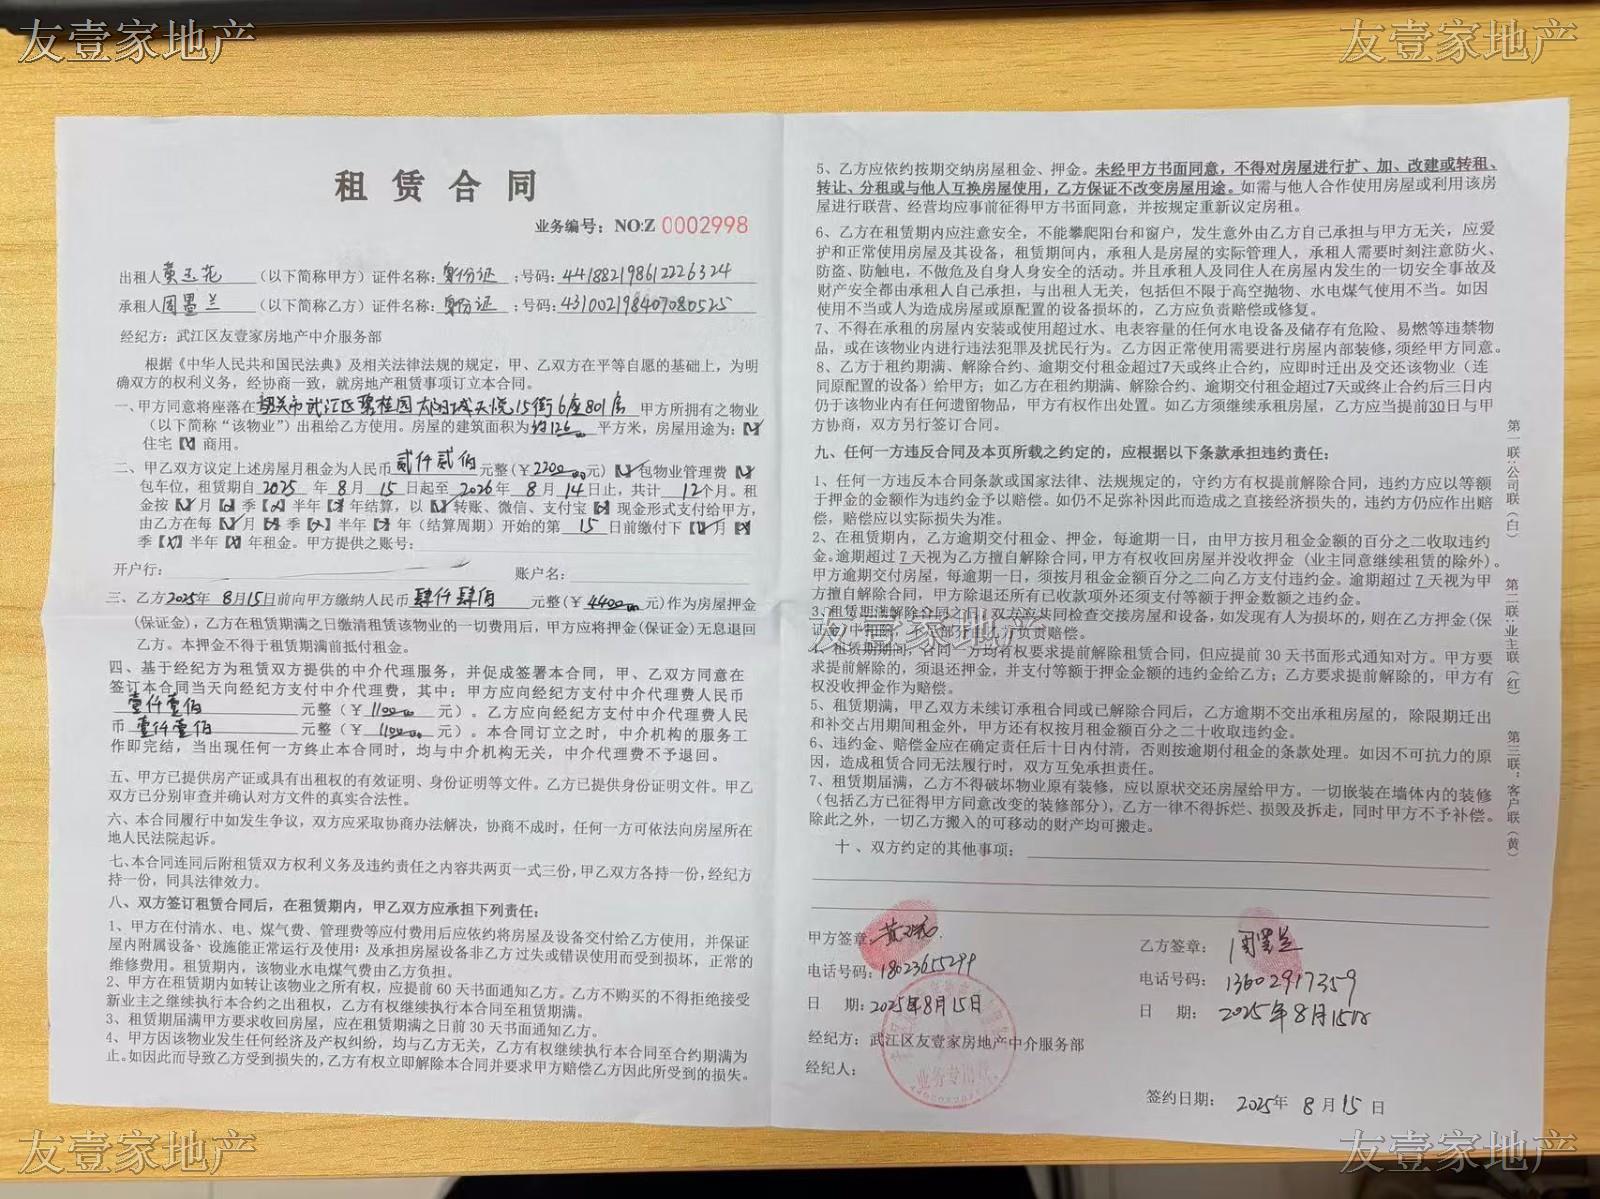 友壹家地产
友壹家地产
租赁合同
业务编号：NO:Z 0002998
出租人黄玉花（以下简称甲方）证件名称：身份证；号码：441882198612226324
承租人周墨兰（以下简称乙方）证件名称：身份证；号码：431002198407080525
经纪方：武江区友壹家房地产中介服务部
根据《中华人民共和国民法典》及相关法律法规的规定，甲、乙双方在平等自愿的基础上，为明
确双方的权利义务，经协商一致，就房地产租赁事项订立本合同。
一、甲方同意将座落在韶关市武江区碧桂园太阳城天悦15街6座801房 甲方所拥有之物业
（以下简称“该物业”）出租给乙方使用。房屋的建筑面积为约126平方米，房屋用途为：【✓】
住宅【×】商用。
二、甲乙双方议定上述房屋月租金为人民币贰仟贰佰元整（￥2200.00元）【✓】包物业管理费【✓】
包车位，租赁期自2025年8月15日起至2026年8月14日止，共计12个月。租
金按【✓】月【×】季【×】半年【×】年结算，以【✓】转账、微信、支付宝【×】现金形式支付给甲方，
由乙方在每【✓】月【×】季【×】半年【×】年（结算周期）开始的第15日前缴付下【✓】月【×】
季【×】半年【×】年租金。甲方提供之账号：
开户行： 账户名：
三、乙方2025年8月15日前向甲方缴纳人民币肆仟肆佰元整（￥4400.00元)作为房屋押金
(保证金)，乙方在租赁期满之日缴清租赁该物业的一切费用后，甲方应将押金(保证金)无息退回
乙方。本押金不得于租赁期满前抵付租金。
四、基于经纪方为租赁双方提供的中介代理服务，并促成签署本合同，甲、乙双方同意在
签订本合同当天向经纪方支付中介代理费，其中：甲方应向经纪方支付中介代理费人民币
壹仟壹佰元整（￥1100.00元）。乙方应向经纪方支付中介代理费人民
币壹仟壹佰元整（￥1100.00元）。本合同订立之时，中介机构的服务工
作即完结，当出现任何一方终止本合同时，均与中介机构无关，中介代理费不予退回。
五、甲方已提供房产证或具有出租权的有效证明、身份证明等文件。乙方已提供身份证明文件。甲乙
双方已分别审查并确认对方文件的真实合法性。
六、本合同履行中如发生争议，双方应采取协商办法解决，协商不成时，任何一方可依法向房屋所在
地人民法院起诉。
七、本合同连同后附租赁双方权利义务及违约责任之内容共两页一式三份，甲乙双方各持一份，经纪方
持一份，同具法律效力。
八、双方签订租赁合同后，在租赁期内，甲乙双方应承担下列责任：
1、甲方在付清水、电、煤气费、管理费等应付费用后应依约将房屋及设备交付给乙方使用，并保证
屋内附属设备、设施能正常运行及使用；及承担房屋设备非乙方过失或错误使用而受到损坏，正常的
维修费用。租赁期内，该物业水电煤气费由乙方负担。
2、甲方在租赁期内如转让该物业之所有权，应提前60天书面通知乙方。乙方不购买的不得拒绝接受
新业主之继续执行本合约之出租权，乙方有权继续执行本合同至租赁期满。
3、租赁期届满甲方要求收回房屋，应在租赁期满之日前30天书面通知乙方。
4、甲方因该物业发生任何经济及产权纠纷，均与乙方无关，乙方有权继续执行本合同至合约期满为
止。如因此而导致乙方受到损失的，乙方有权立即解除本合同并要求甲方赔偿乙方因此所受到的损失。
5、乙方应依约按期交纳房屋租金、押金。未经甲方书面同意，不得对房屋进行扩、加、改建或转租、
转让、分租或与他人互换房屋使用，乙方保证不改变房屋用途。如需与他人合作使用房屋或利用该房
屋进行联营、经营均应事前征得甲方书面同意，并按规定重新议定房租。
6、乙方在租赁期内应注意安全，不能攀爬阳台和窗户，发生意外由乙方自己承担与甲方无关，应爱
护和正常使用房屋及其设备，租赁期间内，承租人是房屋的实际管理人，承租人需要时刻注意防火、
防盗、防触电，不做危及自身人身安全的活动。并且承租人及同住人在房屋内发生的一切安全事故及
财产安全都由承租人自己承担，与出租人无关，包括但不限于高空抛物、水电煤气使用不当。如因
使用不当或人为造成房屋或原配置的设备损坏的，乙方应负责赔偿或修复。
7、不得在承租的房屋内安装或使用超过水、电表容量的任何水电设备及储存有危险、易燃等违禁物
品，或在该物业内进行违法犯罪及扰民行为。乙方因正常使用需要进行房屋内部装修，须经甲方同意。
8、乙方于租约期满、解除合约、逾期交付租金超过7天或终止合约，应即时迁出及交还该物业（连
同原配置的设备）给甲方；如乙方在租约期满、解除合约、逾期交付租金超过7天或终止合约后三日内
仍于该物业内有任何遗留物品，甲方有权作出处置。如乙方须继续承租房屋，乙方应当提前30日与甲
方协商，双方另行签订合同。
九、任何一方违反合同及本页所载之约定的，应根据以下条款承担违约责任：
1、任何一方违反本合同条款或国家法律、法规规定的，守约方有权提前解除合同，违约方应以等额
于押金的金额作为违约金予以赔偿。如仍不足弥补因此而造成之直接经济损失的，违约方仍应作出赔
偿，赔偿应以实际损失为准。
2、在租赁期内，乙方逾期交付租金、押金，每逾期一日，由甲方按月租金金额的百分之二收取违约
金。逾期超过7天视为乙方擅自解除合同，甲方有权收回房屋并没收押金（业主同意继续租赁的除外）。
甲方逾期交付房屋，每逾期一日，须按月租金金额百分之二向乙方支付违约金。逾期超过7天视为甲
方擅自解除合同，甲方除退还所有已收款项外还须支付等额于押金数额之违约金。
3、租赁期满解除合同之日，双方应共同检查交接房屋和设备，如发现有人为损坏的，则在乙方押金(保
证金)中扣除，不足部分由乙方负责赔偿。
友壹家地产
租赁期间，合同一方均有权要求提前解除租赁合同，但应提前30天书面形式通知对方。甲方要
求提前解除的，须退还押金，并支付等额于押金金额的违约金给乙方；乙方要求提前解除的，甲方有
权没收押金作为赔偿。
5、租赁期满，甲乙双方未续订承租合同或已解除合同后，乙方逾期不交出承租房屋的，除限期迁出
和补交占用期间租金外，甲方还有权按月租金额百分之二十收取违约金。
6、违约金、赔偿金应在确定责任后十日内付清，否则按逾期付租金的条款处理。如因不可抗力的原
因，造成租赁合同无法履行时，双方互免承担责任。
7、租赁期届满，乙方不得破坏物业原有装修，应以原状交还房屋给甲方。一切嵌装在墙体内的装修
（包括乙方已征得甲方同意改变的装修部分），乙方一律不得拆烂、损毁及拆走，同时甲方不予补偿。
除此之外，一切乙方搬入的可移动的财产均可搬走。
十、双方约定的其他事项：
甲方签章： 黄玉花
电话号码：18023655299
日 期：2025年8月15日
经纪方：武江区友壹家房地产中介服务部
经纪人：
业务专用章
乙方签章：周墨兰
电话号码：13602917359
日 期：2025年8月15日
签约日期：2025年8月15日
第一联：公司联（白）
第二联：业主联（红）
第三联：客户联（黄）
友壹家地产
友壹家地产